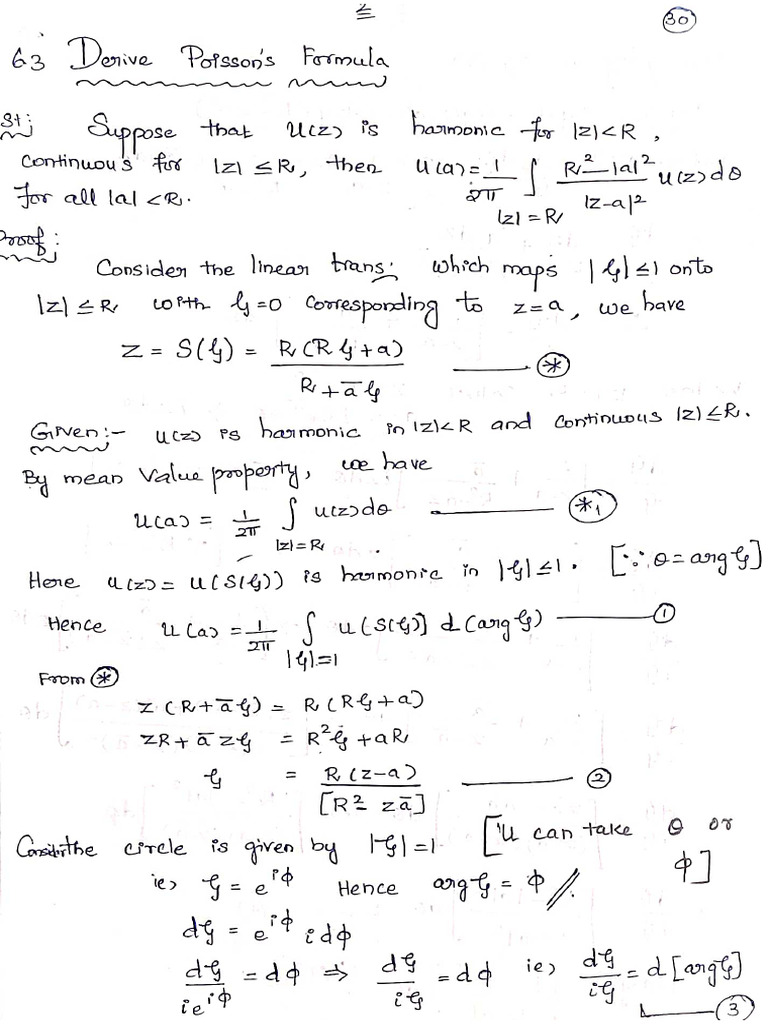 30
6.3 Derive Poisson's Formula
St: Suppose that u(z) is harmonic for |z|<R,
continuous for |z| ≤R, then u(a) = 1/2π ∫_{|z|=R} (R²-|a|²)/|z-a|² u(z)dθ
for all |a|<R.
Proof:
Consider the linear trans: which maps |ζ|≤1 onto
|z|≤R with ζ=0 corresponding to z=a, we have
z = S(ζ) = R(Rζ+a)/(R+āζ) —— (*)
Given:- u(z) is harmonic in |z|<R and continuous |z|≤R.
By mean value property, we have
u(a) = 1/2π ∫_{|z|=R} u(z)dθ —— (*₁)
Here u(z) = u(S(ζ)) is harmonic in |ζ|≤1. [∵ θ = arg ζ]
Hence u(a) = 1/2π ∫_{|ζ|=1} u(S(ζ)] d(arg ζ) —— (1)
From (*)
z(R+āζ) = R(Rζ+a)
zR+āzζ = R²ζ+aR
ζ = R(z-a)/[R²-zā] —— (2)
Consider the circle is given by |ζ|=1 ['U can take θ or φ]
ie) ζ = e^{iφ} Hence arg ζ = φ //.
dζ = e^{iφ} idφ
dζ/ie^{iφ} = dφ ⇒ dζ/iζ = dφ ie) dζ/iζ = d[arg ζ] —— (3)